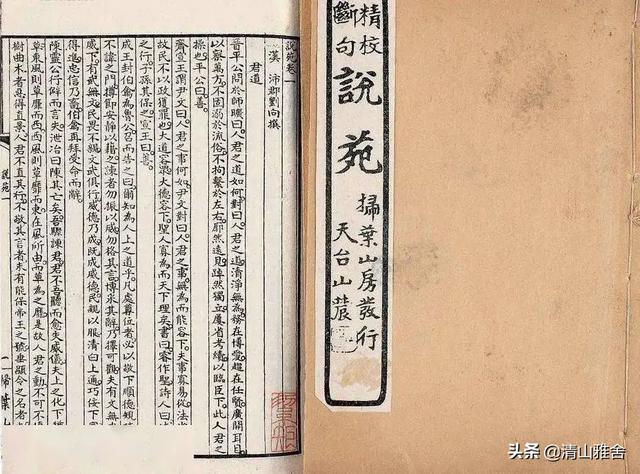 精校
斷句
說苑
掃葉山房發行
天台山農
說苑卷一
漢 沛郡劉向撰
君道
晉平公問於師曠曰人君之道如何對曰人君之道清淨無為務在博愛趨在任賢廣開耳目
以察萬方不固溺於流俗不拘繫於左右廓然遠見踔然獨立屢省考績以臨臣下此人君之
操也平公曰善
齊宣王謂尹文曰人君之事何如尹文對曰人君之事無為而能容下夫事寡易從法
故民不以政獲罪也大道容眾大德容下聖人寡為而天下理矣書曰睿作聖詩人曰
之行子孫其保之宣王曰善
成王封伯禽為魯公召而告之曰爾知為人上之道乎凡處尊位者必以敬下順德規
不諱之門撙節安靜以藉之諫者勿振以威勿格其言博采其辭乃擇可觀夫有文無
威下有武無文民畏不親文武俱行威德乃成既成威德民親以服清白上通巧佞下
得進忠信乃畜伯禽再拜受命而辭
陳靈公行僻而言失泄冶曰陳其亡矣吾驟諫君君不吾聽而愈失威儀夫上之化下
草東風則草靡而西西風則草靡而東在風所由而草為之靡是故人君之動不可不
樹曲木者惡得直景人君不直其行不敬其言者未有能保帝王之號垂顯令之名者
說苑一
一掃葉山
头条 @清山雅舍